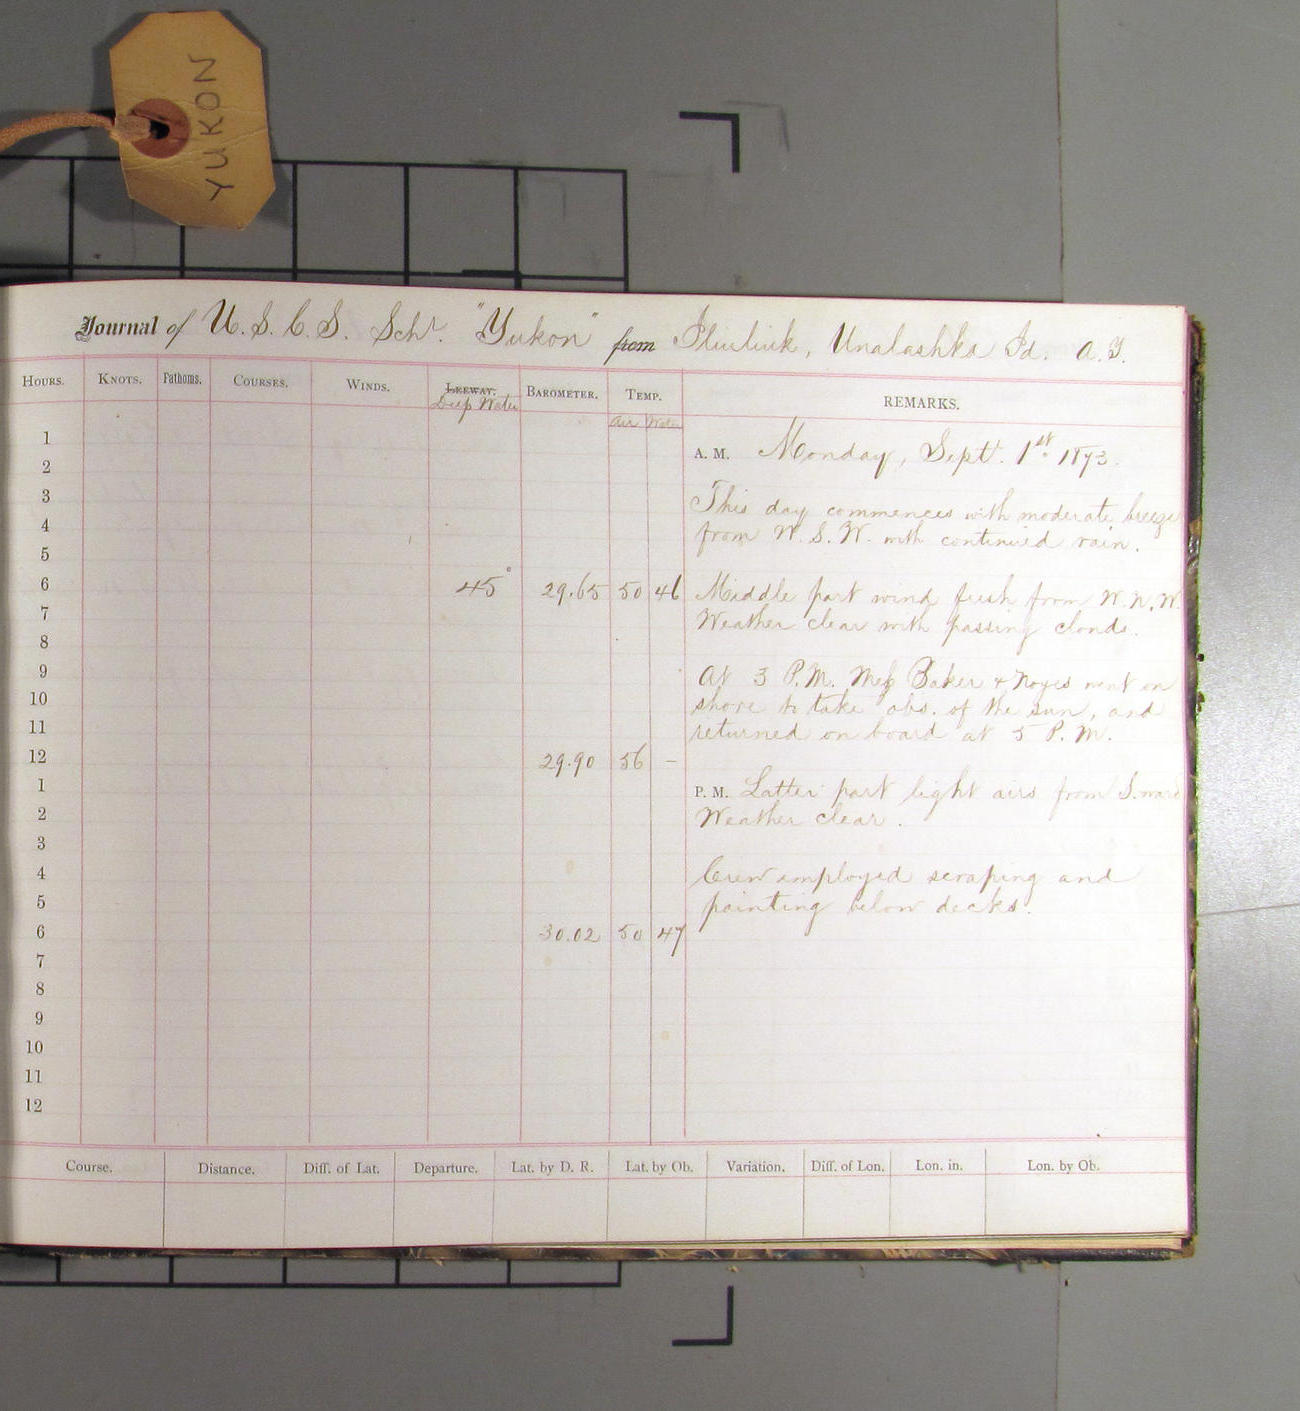 YUKON
Journal of U. S. C. S. Schr. "Yukon" from Iliuliuk, Unalashka Id. A. T.
HOURS. KNOTS. Fathoms. COURSES. WINDS. LEEWAY. BAROMETER. TEMP. REMARKS.
Deep Water
Air Water
1
A. M. Monday, Sept. 1st. 1873.
2
3
This day commences with moderate breeze
4
from W. S. W. with continued rain.
5
6 45° 29.65 50 46 Middle part wind fresh from W. N. W.
7 Weather clear with passing clouds.
8
9 At 3 P. M. Mess Baker & Noyes went on
10 shore to take obs. of the sun, and
11 returned on board at 5 P. M.
12 29.90 56 -
1 P. M. Latter part light airs from S.ward
2 Weather clear.
3
4 Crew employed scraping and
5 painting below decks.
6 30.02 50 47
7
8
9
10
11
12
Course. Distance. Diff. of Lat. Departure. Lat. by D. R. Lat. by Ob. Variation. Diff. of Lon. Lon. in. Lon. by Ob.